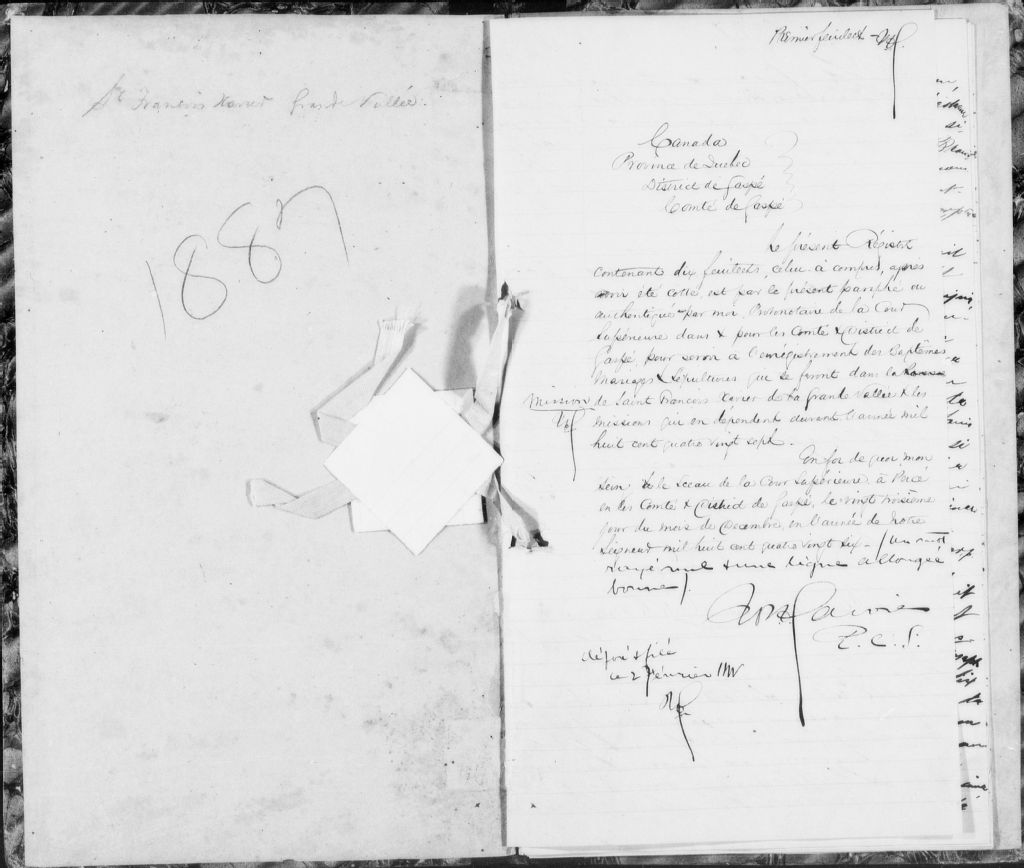 St Francois Xavier Grande Vallée.
1887
Premier feuillet -
Canada
Province de Quebec
District de Gaspé
Comté de Gaspé
Le présent Régistre
contenant dix feuillets, celui-ci compris, après
avoir été cotté, est par le présent paraphé ou
authentiqué par moi, Protonotaire de la Cour
Supérieure dans & pour les Comté & District de
Gaspé, pour servir à l'enrégistrement des Baptêmes
Mariages & Sépultures qui se feront dans la
Mission de Saint Francois Xavier de la Grande Vallée & les
missions qui en dépendent durant l'année mil
huit cent quatre vingt sept.
En foi de quoi mon
sein & le sceau de la Cour Supérieure, à Percé
en les Comté & District de Gaspé, le vingt troisième
jour du mois de Decembre, en l'année de Notre
Seigneur mil huit cent quatre vingt six - (Un mot
rayé nul & une ligne allongée
bonne).
P. C. S.
déposé & filé
le 2 Février